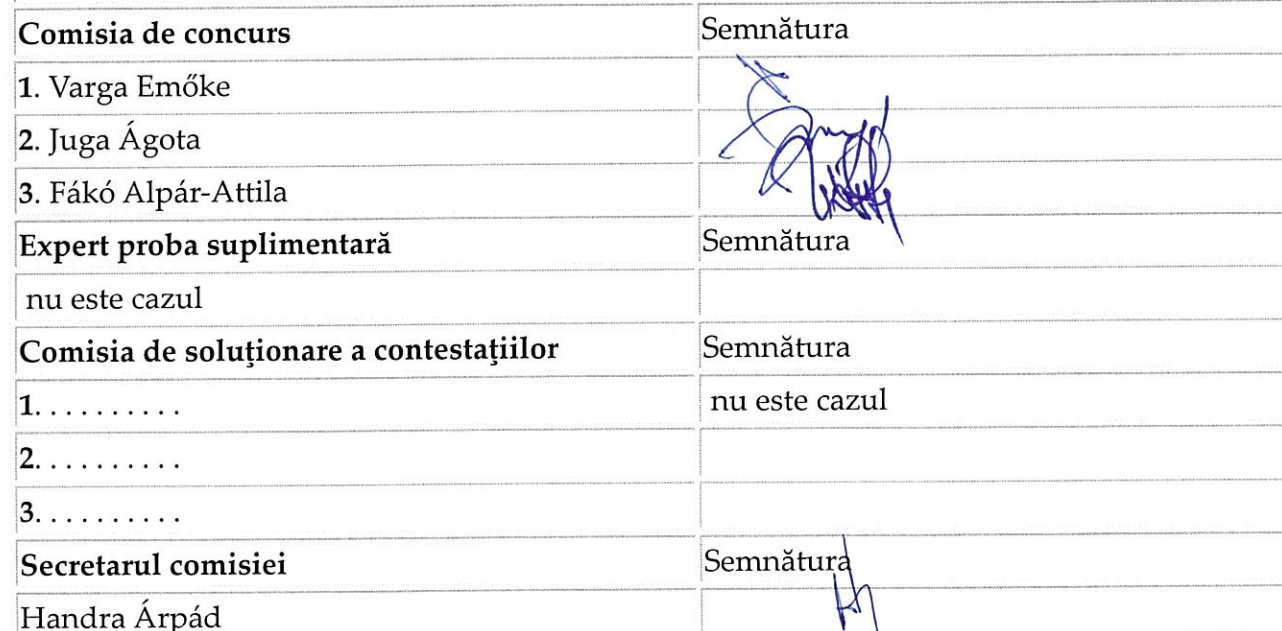 Comisia de concurs Semnătura
1. Varga Emőke
2. Juga Ágota
3. Fákó Alpár-Attila
Expert proba suplimentară Semnătura
nu este cazul
Comisia de soluţionare a contestaţiilor Semnătura
1. . . . . . . . . . nu este cazul
2. . . . . . . . . .
3. . . . . . . . . .
Secretarul comisiei Semnătura
Handra Árpád